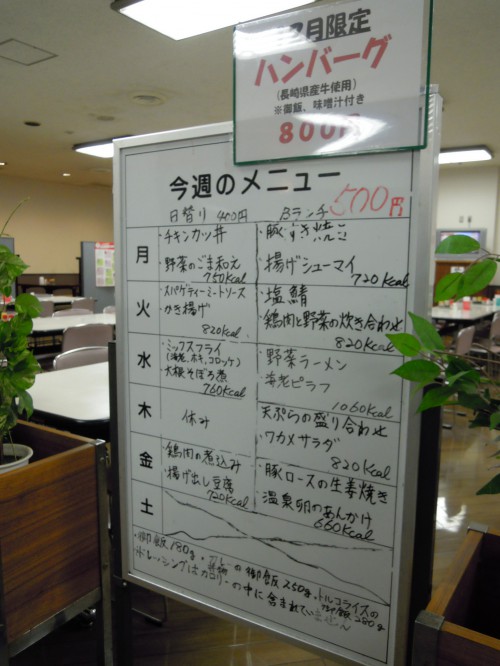 2月限定
ハンバーグ
(長崎県産牛使用)
※御飯、味噌汁付き
800円
今週のメニュー
日替り 400円 Bランチ 500円
月
・チキンカツ丼
・野菜のごま和え
750Kcal
・豚すき焼き
・揚げシューマイ
720Kcal
火
・スパゲティーミートソース
・かき揚げ
820Kcal
・塩鯖
・鶏肉と野菜の炊き合わせ
820Kcal
水
・ミックスフライ
(海老、ホキ、コロッケ)
・大根そぼろ煮
760Kcal
・野菜ラーメン
・海老ピラフ
1060Kcal
木
休み
・天ぷらの盛り合わせ
・ワカメサラダ
820Kcal
金
・鶏肉の煮込み
・揚げ出し豆腐
720Kcal
・豚ロースの生姜焼き
・温泉卵のあんかけ
660Kcal
土
・御飯180g・の御飯250g・トルコライスの御飯280g
・ドレッシングはカロリーの中に含まれていません